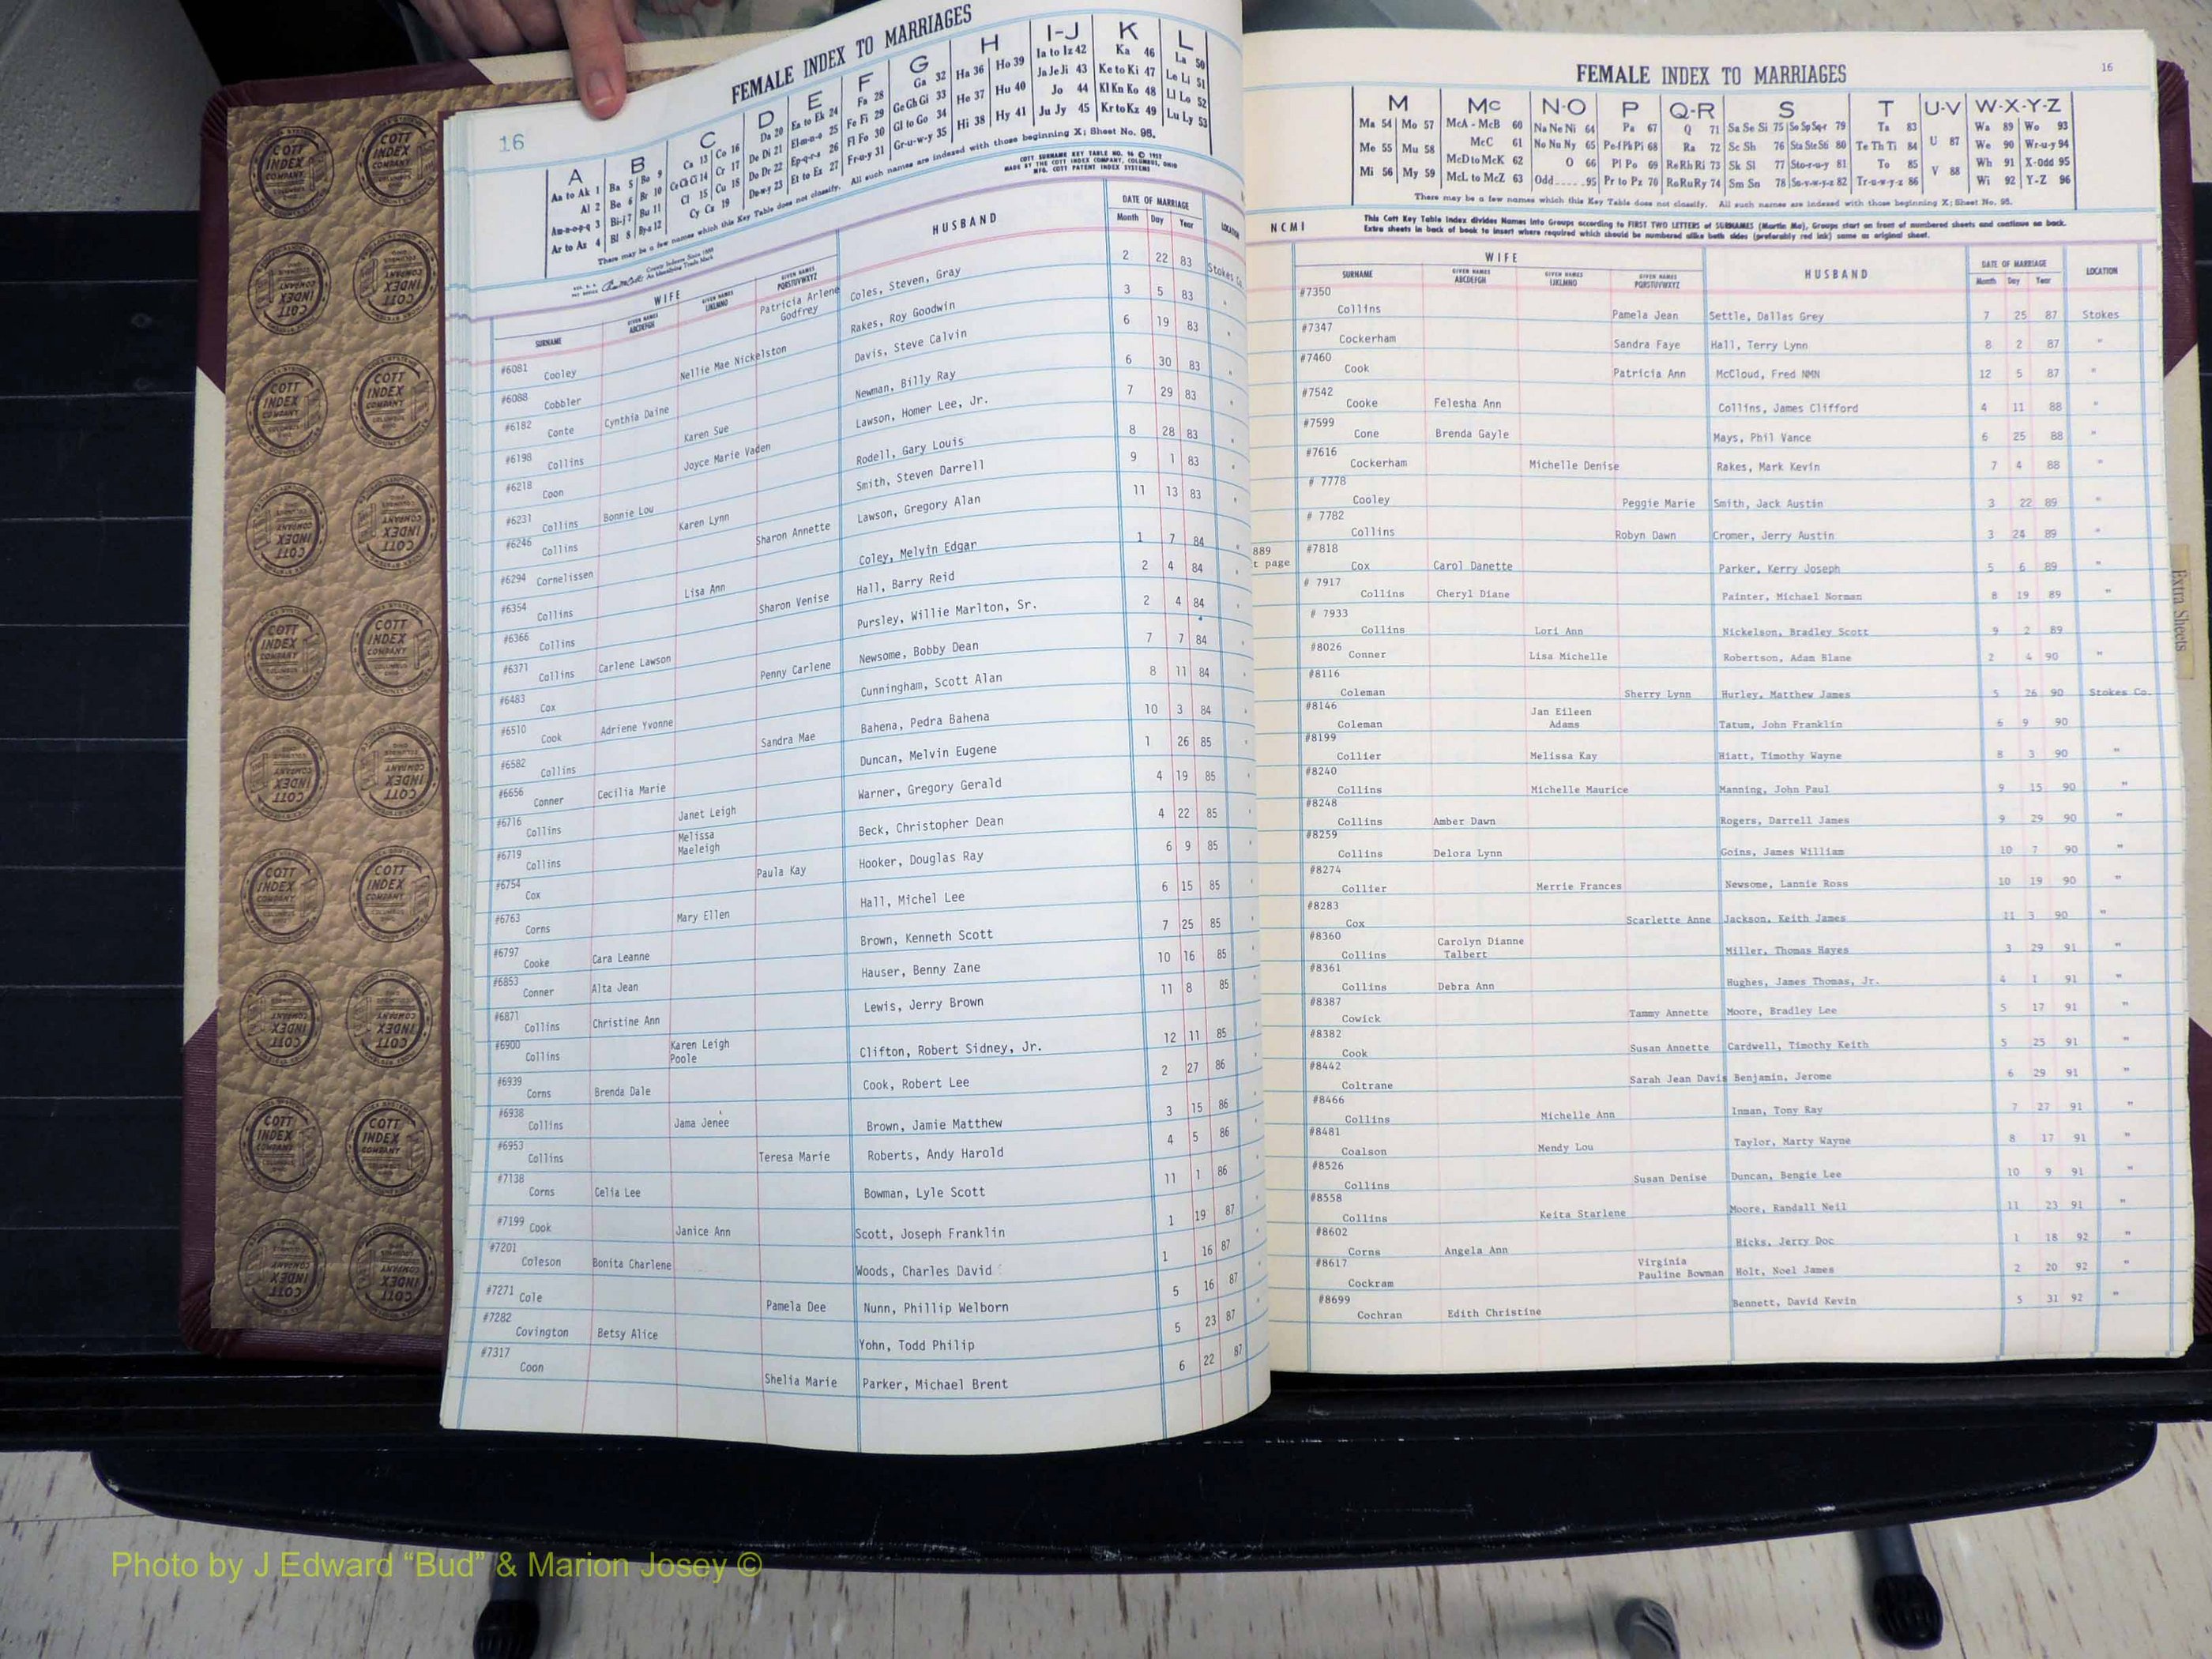 FEMALE INDEX TO MARRIAGES
16
A B C D E F G H I-J K L
Aa to Ak 1 Ba 5 Bo 9 Ca 13 Co 16 Da 20 Ea to Ek 24 Fa 28 Ga 32 Ha 36 Ho 39 Ia to Iz 42 Ka 46 La 50
Al 2 Be 6 Br 10 Ce Ch Ci 14 Cr 17 De Di 21 El-m-n-o 25 Fe Fi 29 Ge Gh Gi 33 He 37 Hu 40 Ja Je Ji 43 Ke to Ki 47 Le Li 51
Am-n-o-p-q 3 Bi-j 7 Bu 11 Cl 15 Cu 18 Do Dr 22 Ep-q-r-s 26 Fl Fo 30 Gl to Go 34 Hi 38 Hy 41 Jo 44 Kl Kn Ko 48 Ll Lo 52
Ar to Az 4 Bl 8 By-z 12 Cy Cz 19 Du-w-y 23 Et to Ez 27 Fr-u-y 31 Gr-u-w-y 35 Ju Jy 45 Kr to Kz 49 Lu Ly 53
There may be a few names which this Key Table does not classify. All such names are indexed with those beginning X; Sheet No. 98.
COTT SURNAME KEY TABLE NO. 96 © 1952
MADE BY THE COTT INDEX COMPANY, COLUMBUS, OHIO
MFG. COTT PATENT INDEX SYSTEMS
WIFE HUSBAND DATE OF MARRIAGE LOCATION
SURNAME GIVEN NAMES ABCDEFGH GIVEN NAMES IJKLMNO GIVEN NAMES PQRSTUVWXYZ Month Day Year
#6081 Cooley Patricia Arlene Godfrey Coles, Steven, Gray 2 22 83 Stokes Co.
#6088 Cobbler Nellie Mae Nickelston Rakes, Roy Goodwin 3 5 83 "
#6182 Conte Cynthia Daine Davis, Steve Calvin 6 19 83 "
#6198 Collins Karen Sue Newman, Billy Ray 6 30 83 "
#6218 Coon Joyce Marie Vaden Lawson, Homer Lee, Jr. 7 29 83 "
#6231 Collins Bonnie Lou Rodell, Gary Louis 8 28 83 "
#6246 Collins Karen Lynn Smith, Steven Darrell 9 1 83 "
#6294 Cornelissen Sharon Annette Lawson, Gregory Alan 11 13 83 "
#6354 Collins Lisa Ann Coley, Melvin Edgar 1 7 84 "
#6366 Collins Sharon Venise Hall, Barry Reid 2 4 84 "
#6371 Collins Carlene Lawson Pursley, Willie Marlton, Sr. 2 4 84 "
#6483 Cox Penny Carlene Newsome, Bobby Dean 7 7 84 "
#6510 Cook Adriene Yvonne Cunningham, Scott Alan 8 11 84 "
#6582 Collins Sandra Mae Bahena, Pedra Bahena 10 3 84 "
#6656 Conner Cecilia Marie Duncan, Melvin Eugene 1 26 85 "
#6716 Collins Janet Leigh Warner, Gregory Gerald 4 19 85 "
#6719 Collins Melissa Maeleigh Beck, Christopher Dean 4 22 85 "
#6754 Cox Paula Kay Hooker, Douglas Ray 6 9 85 "
#6763 Corns Mary Ellen Hall, Michel Lee 6 15 85 "
#6797 Cooke Cara Leanne Brown, Kenneth Scott 7 25 85 "
#6853 Conner Alta Jean Hauser, Benny Zane 10 16 85 "
#6871 Collins Christine Ann Lewis, Jerry Brown 11 8 85 "
#6900 Collins Karen Leigh Poole Clifton, Robert Sidney, Jr. 12 11 85 "
#6939 Corns Brenda Dale Cook, Robert Lee 2 27 86 "
#6938 Collins Jama Jenee Brown, Jamie Matthew 3 15 86 "
#6953 Collins Teresa Marie Roberts, Andy Harold 4 5 86 "
#7138 Corns Celia Lee Bowman, Lyle Scott 11 1 86
#7199 Cook Janice Ann Scott, Joseph Franklin 1 19 87
#7201 Coleson Bonita Charlene Woods, Charles David 1 16 87
#7271 Cole Pamela Dee Nunn, Phillip Welborn 5 16 87
#7282 Covington Betsy Alice Yohn, Todd Philip 5 23 87
#7317 Coon Shelia Marie Parker, Michael Brent 6 22 87
FEMALE INDEX TO MARRIAGES
16
M Mc N-O P Q-R S T U-V W-X-Y-Z
Ma 54 Mo 57 McA - McB 60 Na Ne Ni 64 Pa 67 Q 71 Sa Se Si 75 So Sp Sq-r 79 Ta 83 U 87 Wa 89 Wo 93
Me 55 Mu 58 McC 61 No Nu Ny 65 Pe-f Ph Pi 68 Ra 72 Sc Sh 76 Sta Ste Sti 80 Te Th Ti 84 We 90 Wr-u-y 94
McD to McK 62 O 66 Pl Po 69 Re Rh Ri 73 Sk Sl 77 Sto-r-u-y 81 To 85 V 88 Wh 91 X-Odd 95
Mi 56 My 59 McL to McZ 63 Odd.....95 Pr to Pz 70 Ro Ru Ry 74 Sm Sn 78 Su-v-w-y-z 82 Tr-u-w-y-z 86 Wi 92 Y-Z 96
There may be a few names which this Key Table does not classify. All such names are indexed with those beginning X; Sheet No. 98.
NCMI
This Cott Key Table Index divides Names into Groups according to FIRST TWO LETTERS of SURNAMES (Martin Ma), Groups start on front of numbered sheets and continue on back.
Extra sheets in back of book to insert where required which should be numbered alike both sides (preferably red ink) same as original sheet.
WIFE HUSBAND DATE OF MARRIAGE LOCATION
SURNAME GIVEN NAMES ABCDEFGH GIVEN NAMES IJKLMNO GIVEN NAMES PQRSTUVWXYZ Month Day Year
#7350 Collins Pamela Jean Settle, Dallas Grey 7 25 87 Stokes
#7347 Cockerham Sandra Faye Hall, Terry Lynn 8 2 87 "
#7460 Cook Patricia Ann McCloud, Fred NMN 12 5 87 "
#7542 Cooke Felesha Ann Collins, James Clifford 4 11 88 "
#7599 Cone Brenda Gayle Mays, Phil Vance 6 25 88 "
#7616 Cockerham Michelle Denise Rakes, Mark Kevin 7 4 88 "
# 7778 Cooley Peggie Marie Smith, Jack Austin 3 22 89 "
# 7782 Collins Robyn Dawn Cromer, Jerry Austin 3 24 89 "
889
t page
#7818 Cox Carol Danette Parker, Kerry Joseph 5 6 89 "
# 7917 Collins Cheryl Diane Painter, Michael Norman 8 19 89 "
# 7933 Collins Lori Ann Nickelson, Bradley Scott 9 2 89
#8026 Conner Lisa Michelle Robertson, Adam Blane 2 4 90 "
#8116 Coleman Sherry Lynn Hurley, Matthew James 5 26 90 Stokes Co.
#8146 Coleman Jan Eileen Adams Tatum, John Franklin 6 9 90
#8199 Collier Melissa Kay Hiatt, Timothy Wayne 8 3 90 "
#8240 Collins Michelle Maurice Manning, John Paul 9 15 90 "
#8248 Collins Amber Dawn Rogers, Darrell James 9 29 90 "
#8259 Collins Delora Lynn Goins, James William 10 7 90 "
#8274 Collier Merrie Frances Newsome, Lannie Ross 10 19 90 "
#8283 Cox Scarlette Anne Jackson, Keith James 11 3 90 "
#8360 Collins Carolyn Dianne Talbert Miller, Thomas Hayes 3 29 91 "
#8361 Collins Debra Ann Hughes, James Thomas, Jr. 4 1 91 "
#8387 Cowick Tammy Annette Moore, Bradley Lee 5 17 91 "
#8382 Cook Susan Annette Cardwell, Timothy Keith 5 25 91 "
#8442 Coltrane Sarah Jean Davis Benjamin, Jerome 6 29 91 "
#8466 Collins Michelle Ann Inman, Tony Ray 7 27 91 "
#8481 Coalson Mendy Lou Taylor, Marty Wayne 8 17 91 "
#8526 Collins Susan Denise Duncan, Bengie Lee 10 9 91 "
#8558 Collins Keita Starlene Moore, Randall Neil 11 23 91 "
#8602 Corns Angela Ann Hicks, Jerry Doc 1 18 92 "
#8617 Cockram Virginia Pauline Bowman Holt, Noel James 2 20 92 "
#8699 Cochran Edith Christine Bennett, David Kevin 5 31 92 "
Extra Sheets
COTT INDEX COMPANY
Photo by J Edward “Bud” & Marion Josey ©